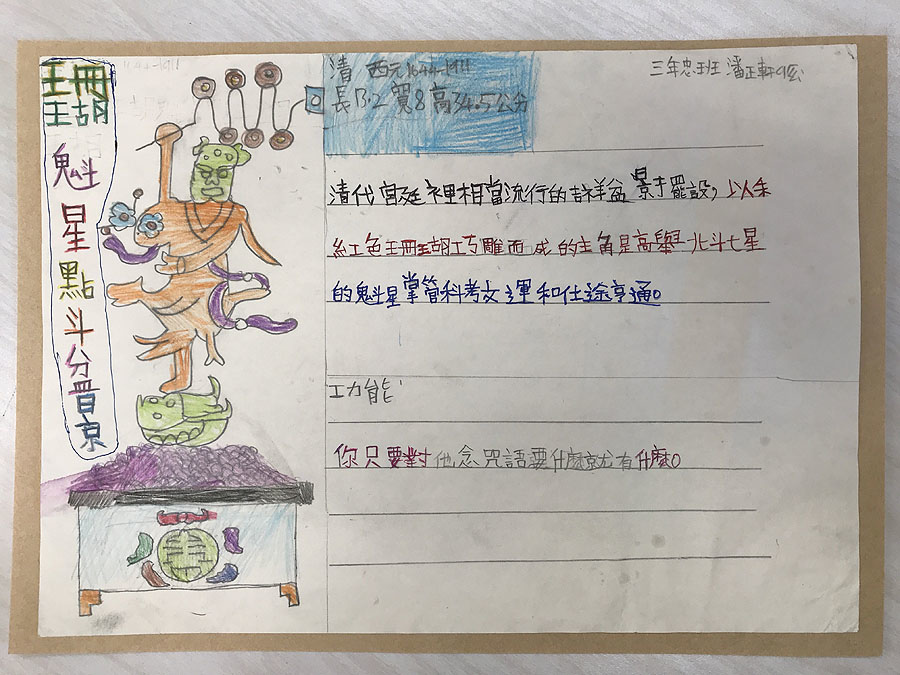 珊瑚魁星點斗分晋京
清 西元1644-1911
長13.2寬8高34.5公分
三年忠班 潘正軒
清代宮廷裡相當流行的吉祥盆景擺設,以朱
紅色珊瑚巧雕而成的主角是高舉北斗七星
的魁星掌管科考文運和仕途亨通。
功能
你只要對他念咒語要什麼就有什麼。